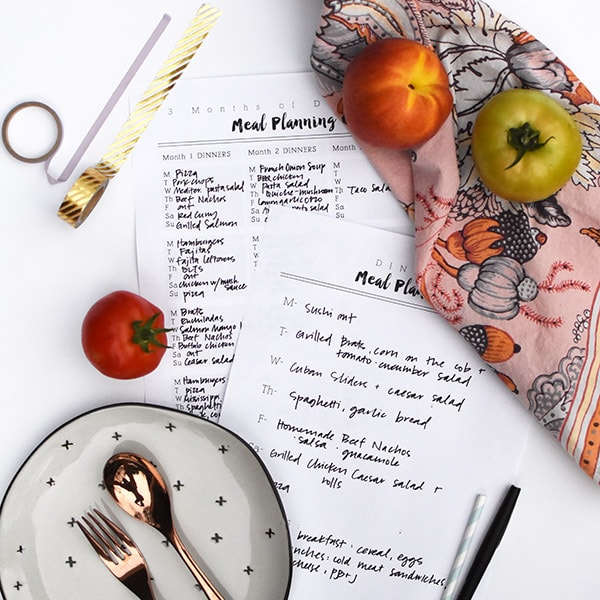 3 Months of D
Meal Planning
Month 1 DINNERS
M Pizza
T Pork chops
W Mediter. pasta salad
Th Beef Nachos
F out
Sa Red curry
Su Grilled Salmon
M Hamburgers
T Fajitas
W fajita leftovers
Th BLTS
F out
Sa chicken w/ mush sauce
Su pizza
M Brats
T Enchiladas
W Salmon
Th Beef Nachos
F Buffalo chicken
Sa out
Su Ceasar salad
M Hamburgers
T pizza
W
Th spaghetti
Month 2 DINNERS
M French Onion Soup
T chicken
W Pasta Salad
Th Quiche - mushroom
F
Sa salad
Su
Month
M
T
W Taco Salad
DIN
Meal Plan
M- Sushi out
T- Grilled Brats, corn on the cob +
tomato-cucumber salad
W- Cuban Sliders + caesar salad
Th- Spaghetti, garlic bread
F- Homemade Beef Nachos
salsa guacamole
Sa- Grilled Chicken Caesar salad +
rolls
breakfast: cereal, eggs
nches: cold meat sandwiches
cheese, PB+J